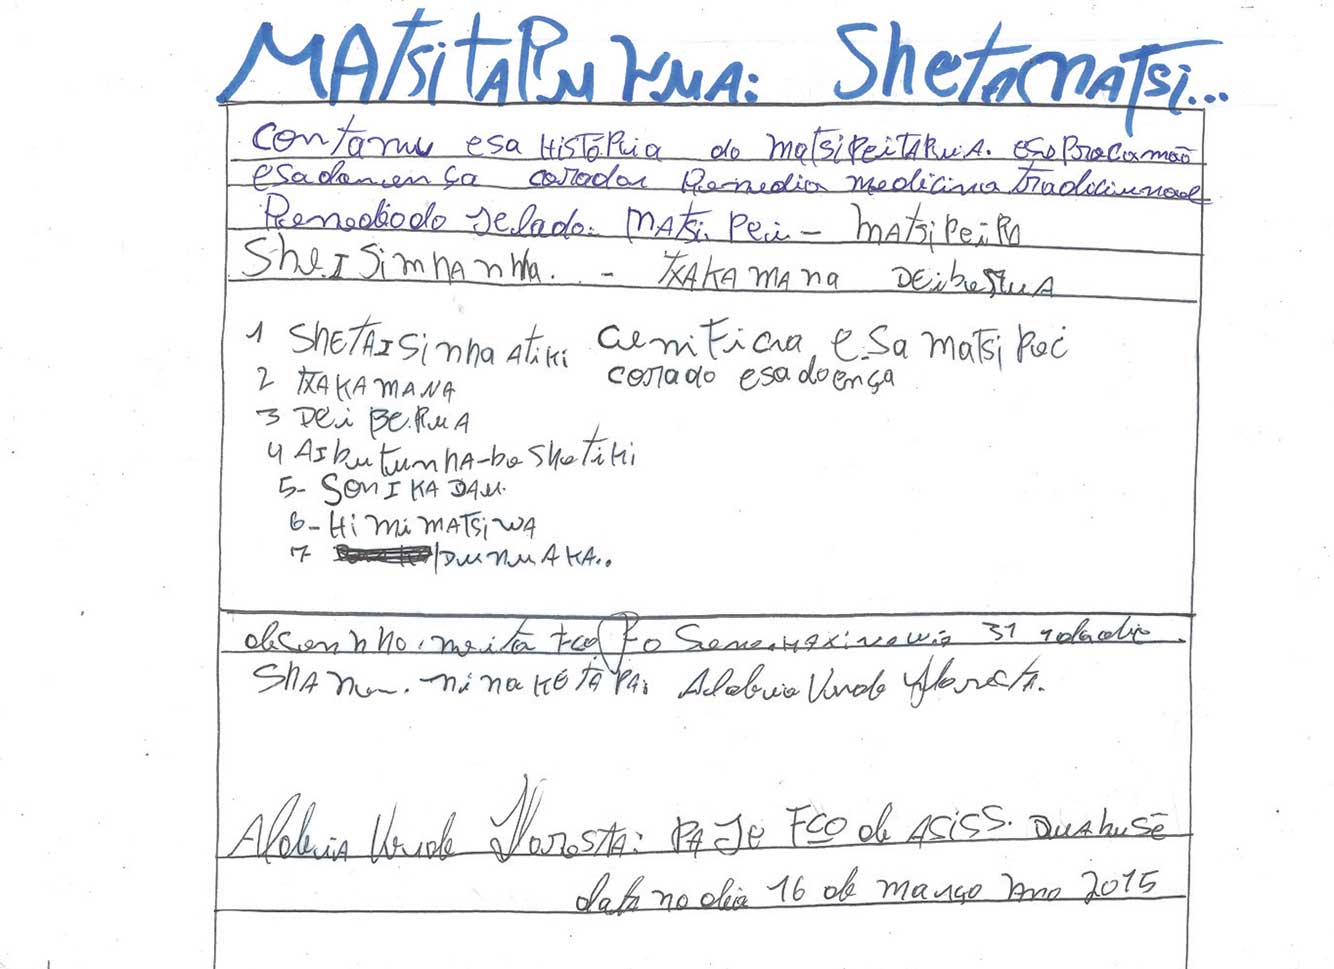 MATSITARU HUMA: ShetaMATSi...
contamu esa HISTÓRIA do MATSiPEITARUA. eso
esa doença corador Remedio medicina Tradiciunal
Remedio do gelado. MATSi Pei - MATSiPEiRA
SheISimnAnha. - TXAKAMAna DEiberuA
1 SHETAISinha ATiKi esa matsi Pei
corado esa doença
2 TXAKAMANA
3 DEi BERUA
4 AIbuTunHA-bo SheTiKi
5- SONIKADAU.
6- Hi Mi MATSiWA
7 DUNUAKA..
desennho. meità Fco Fo 31 idadi
SHAnu. ninaKÉTAPA: Aldeia Verde Floresta.
Aldeia Verde Floresta: PAJE Fco de ASiSS. DUAbuSẼ
data no dia 16 de março Ano 2015